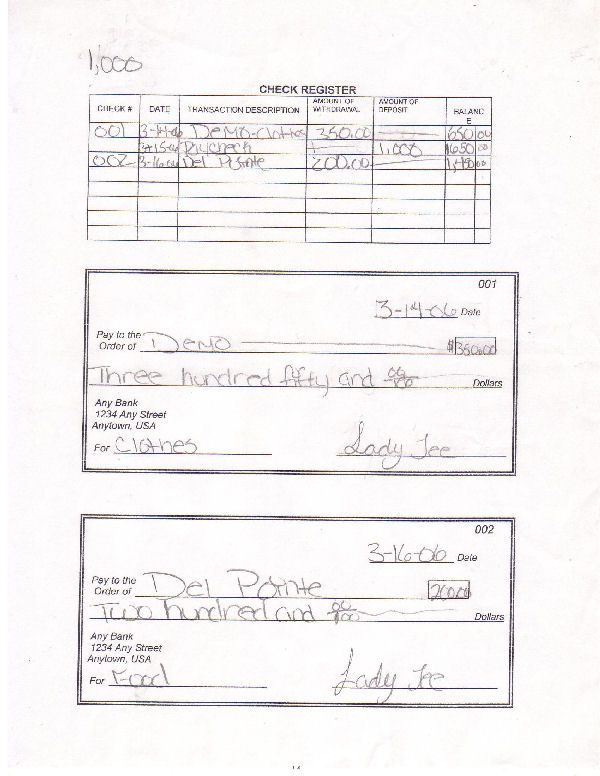 1,000
CHECK REGISTER
CHECK # DATE TRANSACTION DESCRIPTION AMOUNT OF WITHDRAWAL AMOUNT OF DEPOSIT BALANCE
001 3-14-06 Demo-Clothes 350.00 650 00
3-15-06 Paycheck 1,000 1650 00
002 3-16-06 Del Pointe 200.00 00
001
3-14-06 Date
Pay to the
Order of Demo $350.00
Three hundred fifty and 00/100 Dollars
Any Bank
1234 Any Street
Anytown, USA
For Clothes Lady Tee
002
3-16-06 Date
Pay to the
Order of Del Pointe 200.00
Two hundred and 00/100 Dollars
Any Bank
1234 Any Street
Anytown, USA
For Food Lady Tee